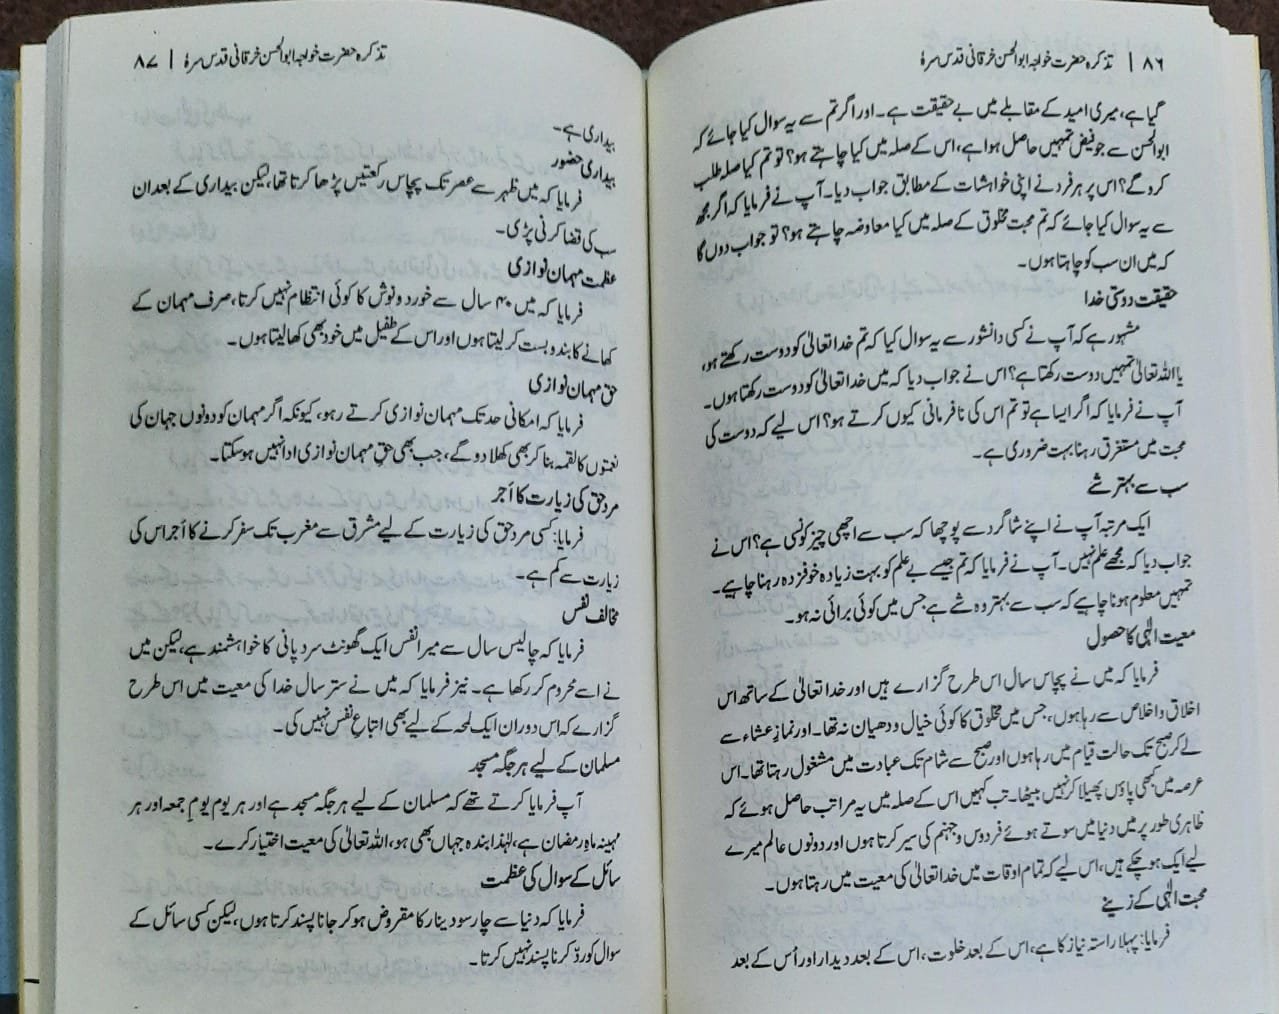 ۸۶ | تذکرہ حضرت خواجہ ابوالحسن خرقانی قدس سرہٗ
گیا ہے، میری امید کے مقابلے میں بے حقیقت ہے۔ اور اگر تم سے یہ سوال کیا جائے کہ
ابوالحسن سے جو فیض تمہیں حاصل ہوا ہے، اس کے صلہ میں کیا چاہتے ہو؟ تو تم کیا صلہ طلب
کرو گے؟ اس پر ہر فرد نے اپنی خواہشات کے مطابق جواب دیا۔ آپ نے فرمایا کہ اگر مجھ
سے یہ سوال کیا جائے کہ تم محبت مخلوق کے صلہ میں کیا معاوضہ چاہتے ہو؟ تو جواب دوں گا
کہ میں ان سب کو چاہتا ہوں۔
حقیقت دوستی خدا
مشہور ہے کہ آپ نے کسی دانشور سے یہ سوال کیا کہ تم خدا تعالیٰ کو دوست رکھتے ہو،
یا اللہ تعالیٰ تمہیں دوست رکھتا ہے؟ اس نے جواب دیا کہ میں خدا تعالیٰ کو دوست رکھتا ہوں۔
آپ نے فرمایا کہ اگر ایسا ہے تو تم اس کی نافرمانی کیوں کرتے ہو؟ اس لیے کہ دوست کی
محبت میں مستغرق رہنا بہت ضروری ہے۔
سب سے بہتر شے
ایک مرتبہ آپ نے اپنے شاگرد سے پوچھا کہ سب سے اچھی چیز کونسی ہے؟ اس نے
جواب دیا کہ مجھے علم نہیں۔ آپ نے فرمایا کہ تم جیسے بے علم کو بہت زیادہ خوفزدہ رہنا چاہیے۔
تمہیں معلوم ہونا چاہیے کہ سب سے بہتر وہ شے ہے جس میں کوئی برائی نہ ہو۔
معیت الٰہی کا حصول
فرمایا کہ میں نے پچاس سال اس طرح گزارے ہیں اور خدا تعالیٰ کے ساتھ اس
اخلاق و اخلاص سے رہا ہوں، جس میں مخلوق کا کوئی خیال و دھیان نہ تھا۔ اور نمازِ عشاء سے
لے کر صبح تک حالت قیام میں رہا ہوں اور صبح سے شام تک عبادت میں مشغول رہتا تھا۔ اس
عرصہ میں کبھی پاؤں پھیلا کر نہیں بیٹھا۔ تب کہیں اس کے صلہ میں یہ مراتب حاصل ہوئے کہ
ظاہری طور پر میں دنیا میں سوتے ہوئے فردوس و جہنم کی سیر کرتا ہوں اور دونوں عالم میرے
لیے ایک ہو چکے ہیں، اس لیے کہ تمام اوقات میں خدا تعالیٰ کی معیت میں رہتا ہوں۔
محبت الٰہی کے زینے
فرمایا: پہلا راستہ نیاز کا ہے، اس کے بعد خلوت، اس کے بعد دیدار اور اُس کے بعد
تذکرہ حضرت خواجہ ابوالحسن خرقانی قدس سرہٗ | ۸۷
بیداری ہے۔
بیداری حضور
فرمایا کہ میں ظہر سے عصر تک پچاس رکعتیں پڑھا کرتا تھا، لیکن بیداری کے بعد ان
سب کی قضا کرنی پڑی۔
عظمت مہمان نوازی
فرمایا کہ میں ۴۰ سال سے خورد و نوش کا کوئی انتظام نہیں کرتا، صرف مہمان کے
کھانے کا بندوبست کر لیتا ہوں اور اس کے طفیل میں خود بھی کھا لیتا ہوں۔
حق مہمان نوازی
فرمایا کہ امکانی حد تک مہمان نوازی کرتے رہو، کیونکہ اگر مہمان کو دونوں جہان کی
نعمتوں کا لقمہ بنا کر بھی کھلا دو گے، جب بھی حقِ مہمان نوازی ادا نہیں ہوسکتا۔
مردِ حق کی زیارت کا اَجر
فرمایا: کسی مردِ حق کی زیارت کے لیے مشرق سے مغرب تک سفر کرنے کا اَجر اس کی
زیارت سے کم ہے۔
مخالف نفس
فرمایا کہ چالیس سال سے میرا نفس ایک گھونٹ سرد پانی کا خواہشمند ہے، لیکن میں
نے اسے محروم کر رکھا ہے۔ نیز فرمایا کہ میں نے ستر سال خدا کی معیت میں اس طرح
گزارے کہ اس دوران ایک لمحہ کے لیے بھی اتباعِ نفس نہیں کی۔
مسلمان کے لیے ہر جگہ مسجد
آپ فرمایا کرتے تھے کہ مسلمان کے لیے ہر جگہ مسجد ہے اور ہر یوم یومِ جمعہ اور ہر
مہینہ ماہِ رمضان ہے، لہٰذا بندہ جہاں بھی ہو، اللہ تعالیٰ کی معیت اختیار کرے۔
سائل کے سوال کی عظمت
فرمایا کہ دنیا سے چار سو دینار کا مقروض ہو کر جانا پسند کرتا ہوں، لیکن کسی سائل کے
سوال کو ردّ کرنا پسند نہیں کرتا۔